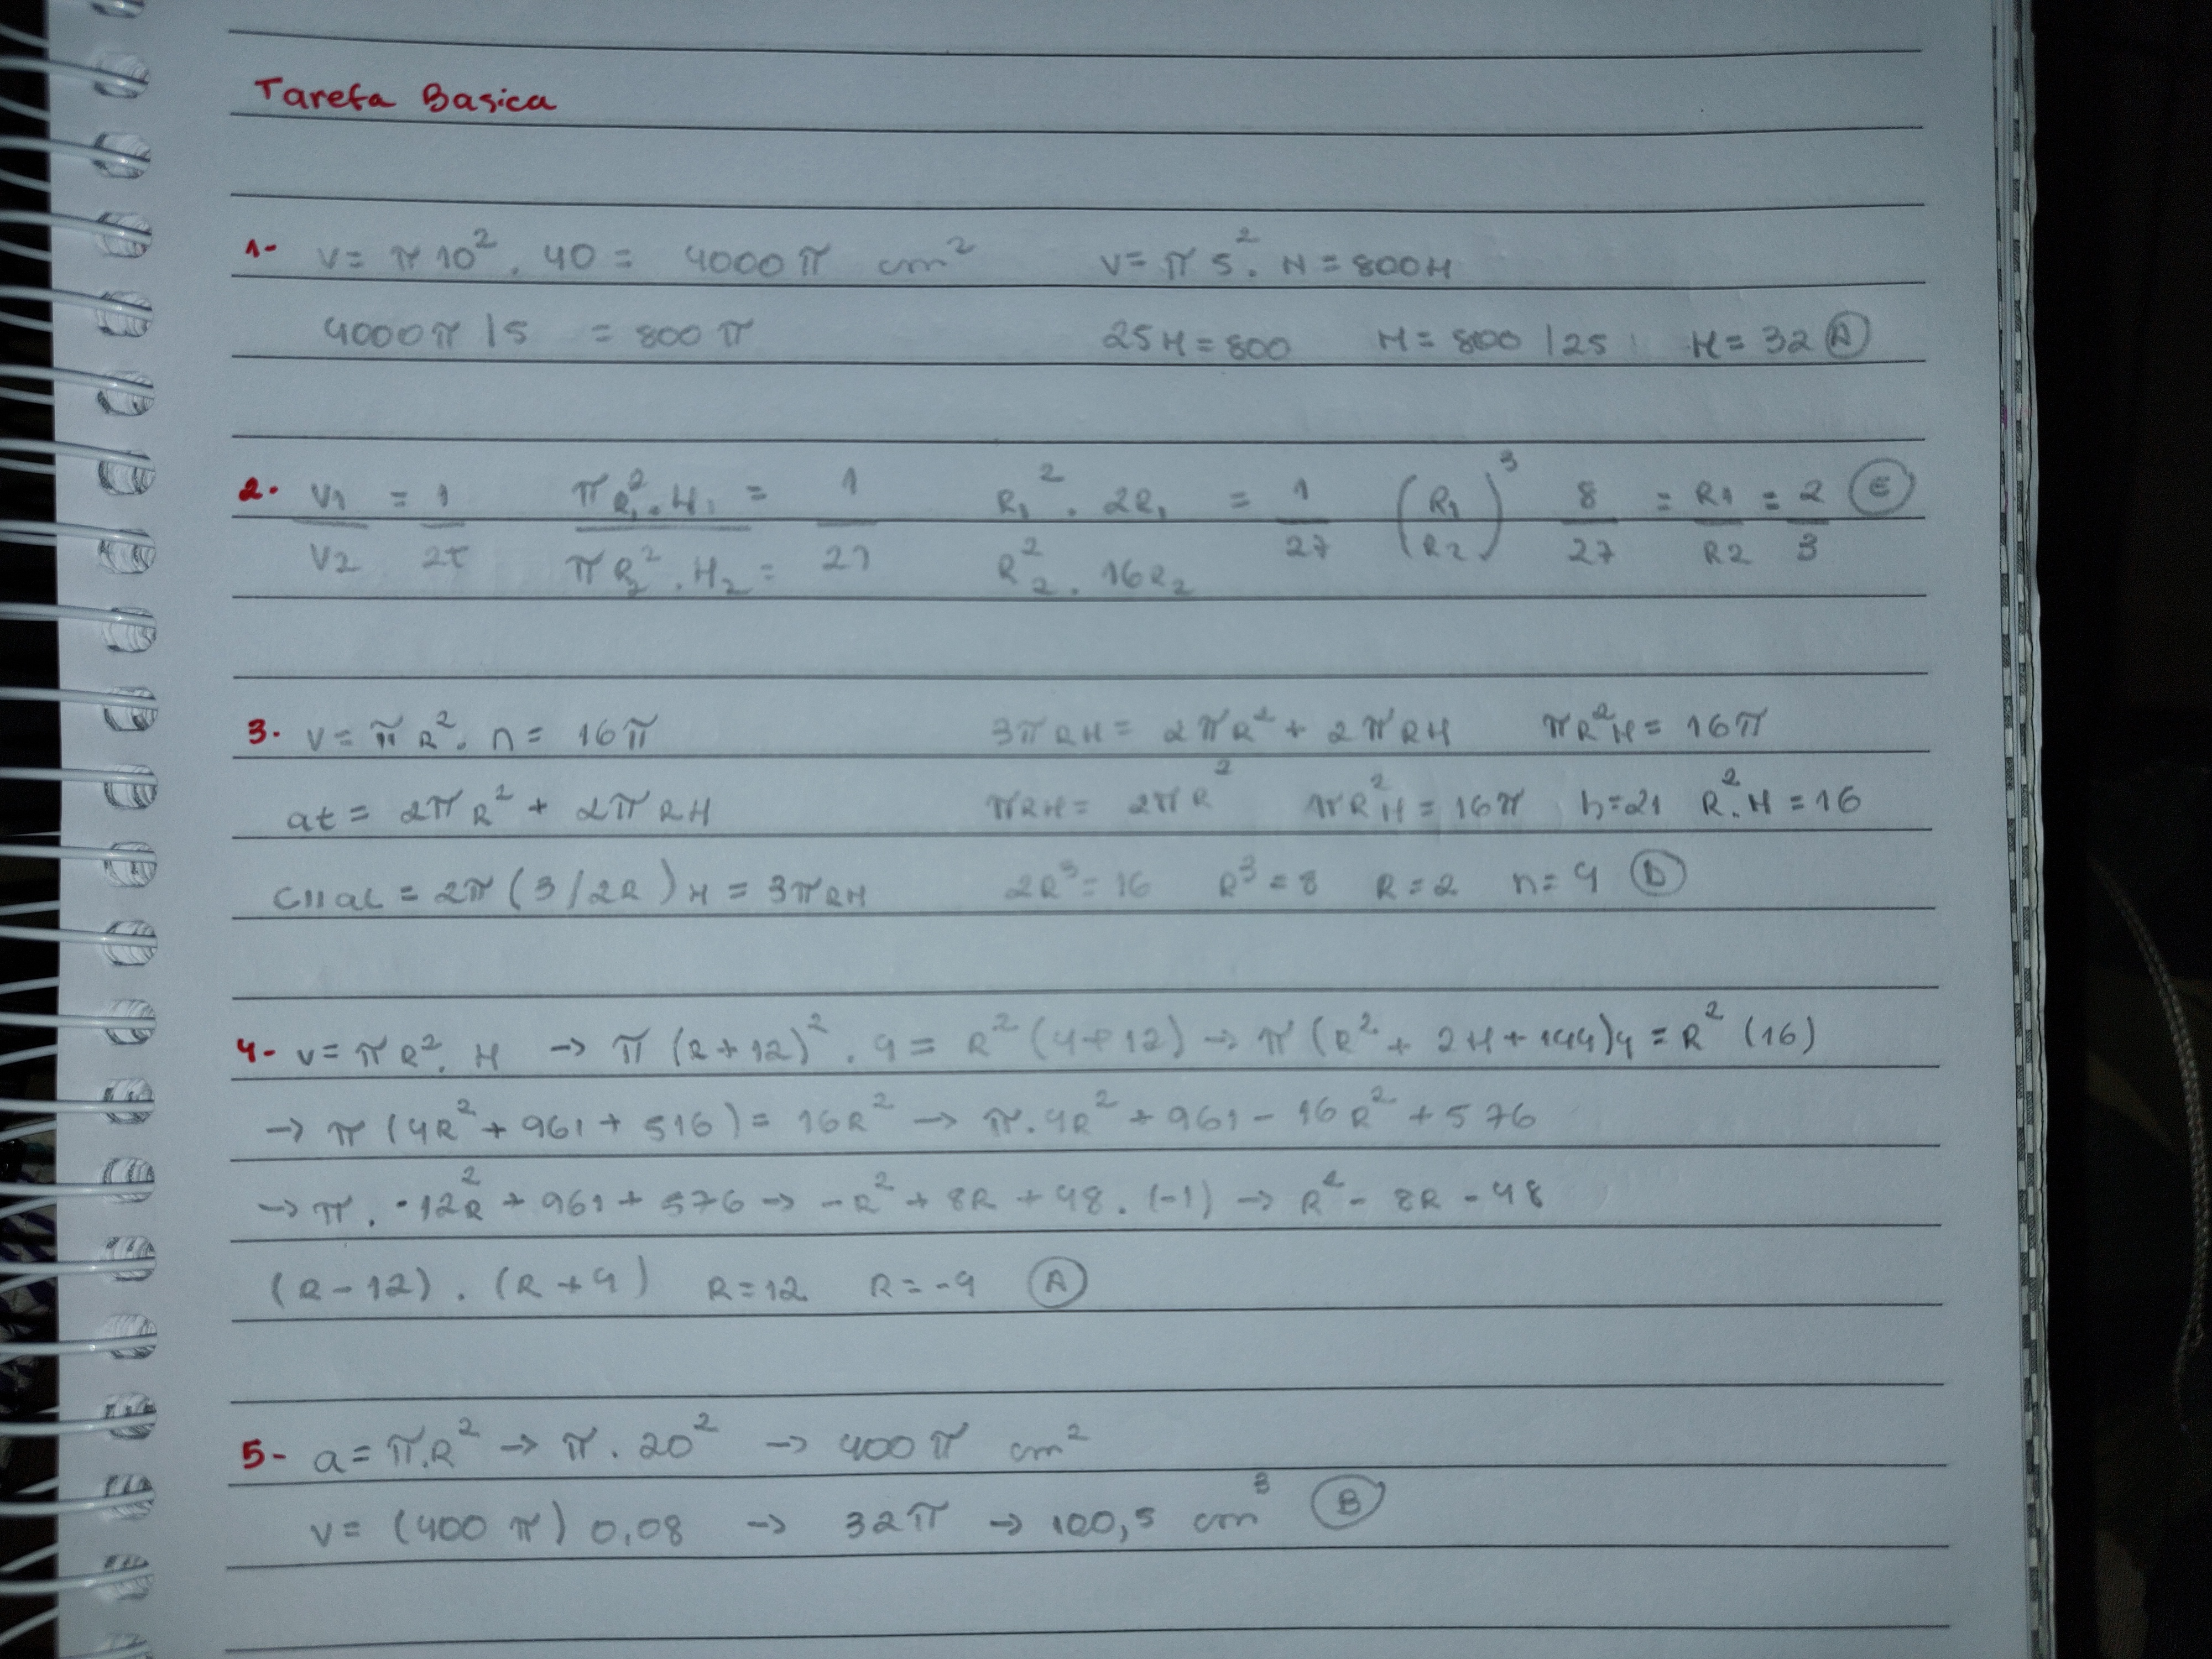 Tarefa Basica
1- V = π 10². 40 = 4000 π cm² V = π 5². H = 800H
4000 π / 5 = 800 π 25H = 800 H = 800 / 25 H = 32 (A)
2. V1 = 1 πR1².H1 = 1 R1². 2R1 = 1 (R1)³ 8 = R1 = 2 (E)
V2 27 πR2².H2 = 27 R2². 16R2 27 (R2) 27 R2 3
3. V = π R². n = 16π 3πRH = 2πR² + 2πRH πR²H = 16π
at = 2πR² + 2πRH πRH = 2πR² πR²H = 16π h=21 R².H = 16
= 2π (3/2R) H = 3πRH 2R³ = 16 R³ = 8 R = 2 n = 4 (D)
4- V = πR². H → π (R+12)². 4 = R² (4+12) → π (R² + 2H + 144)4 = R² (16)
→ π (4R² + 961 + 516) = 16R² → π. 4R² + 961 - 16R² + 576
→ π. -12R² + 961 + 576 → -R² + 8R + 48. (-1) → R² - 8R - 48
(R-12). (R+4) R=12 R=-4 (A)
5- a = π.R² → π. 20² → 400 π cm²
V = (400 π) 0,08 → 32π → 100,5 cm³ (B)